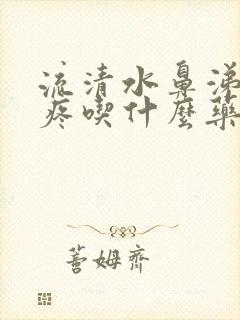 流清水鼻涕
疼喫什麼藥
善姆齊